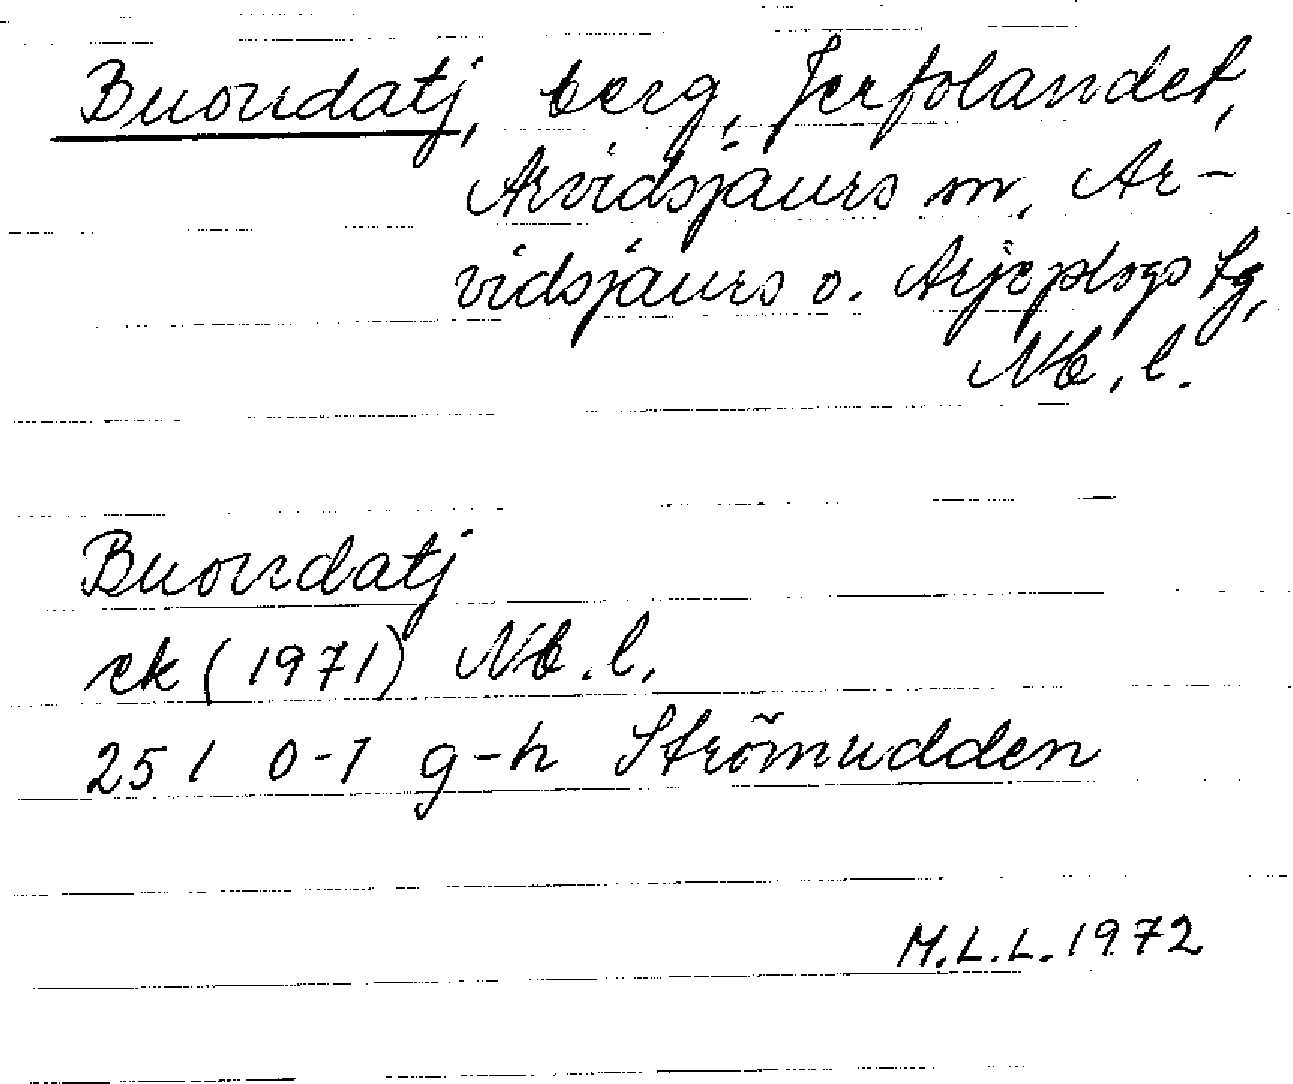 Buovdatj, berg, Jerfolandet,
Arvidsjaurs sn, Ar-
vidsjaurs o. Arjeplogs tg,
Nb. l.
Buovdatj
ek (1971) Nb. l.
25 I 0-1 g-h Strömudden
M.L.L. 1972